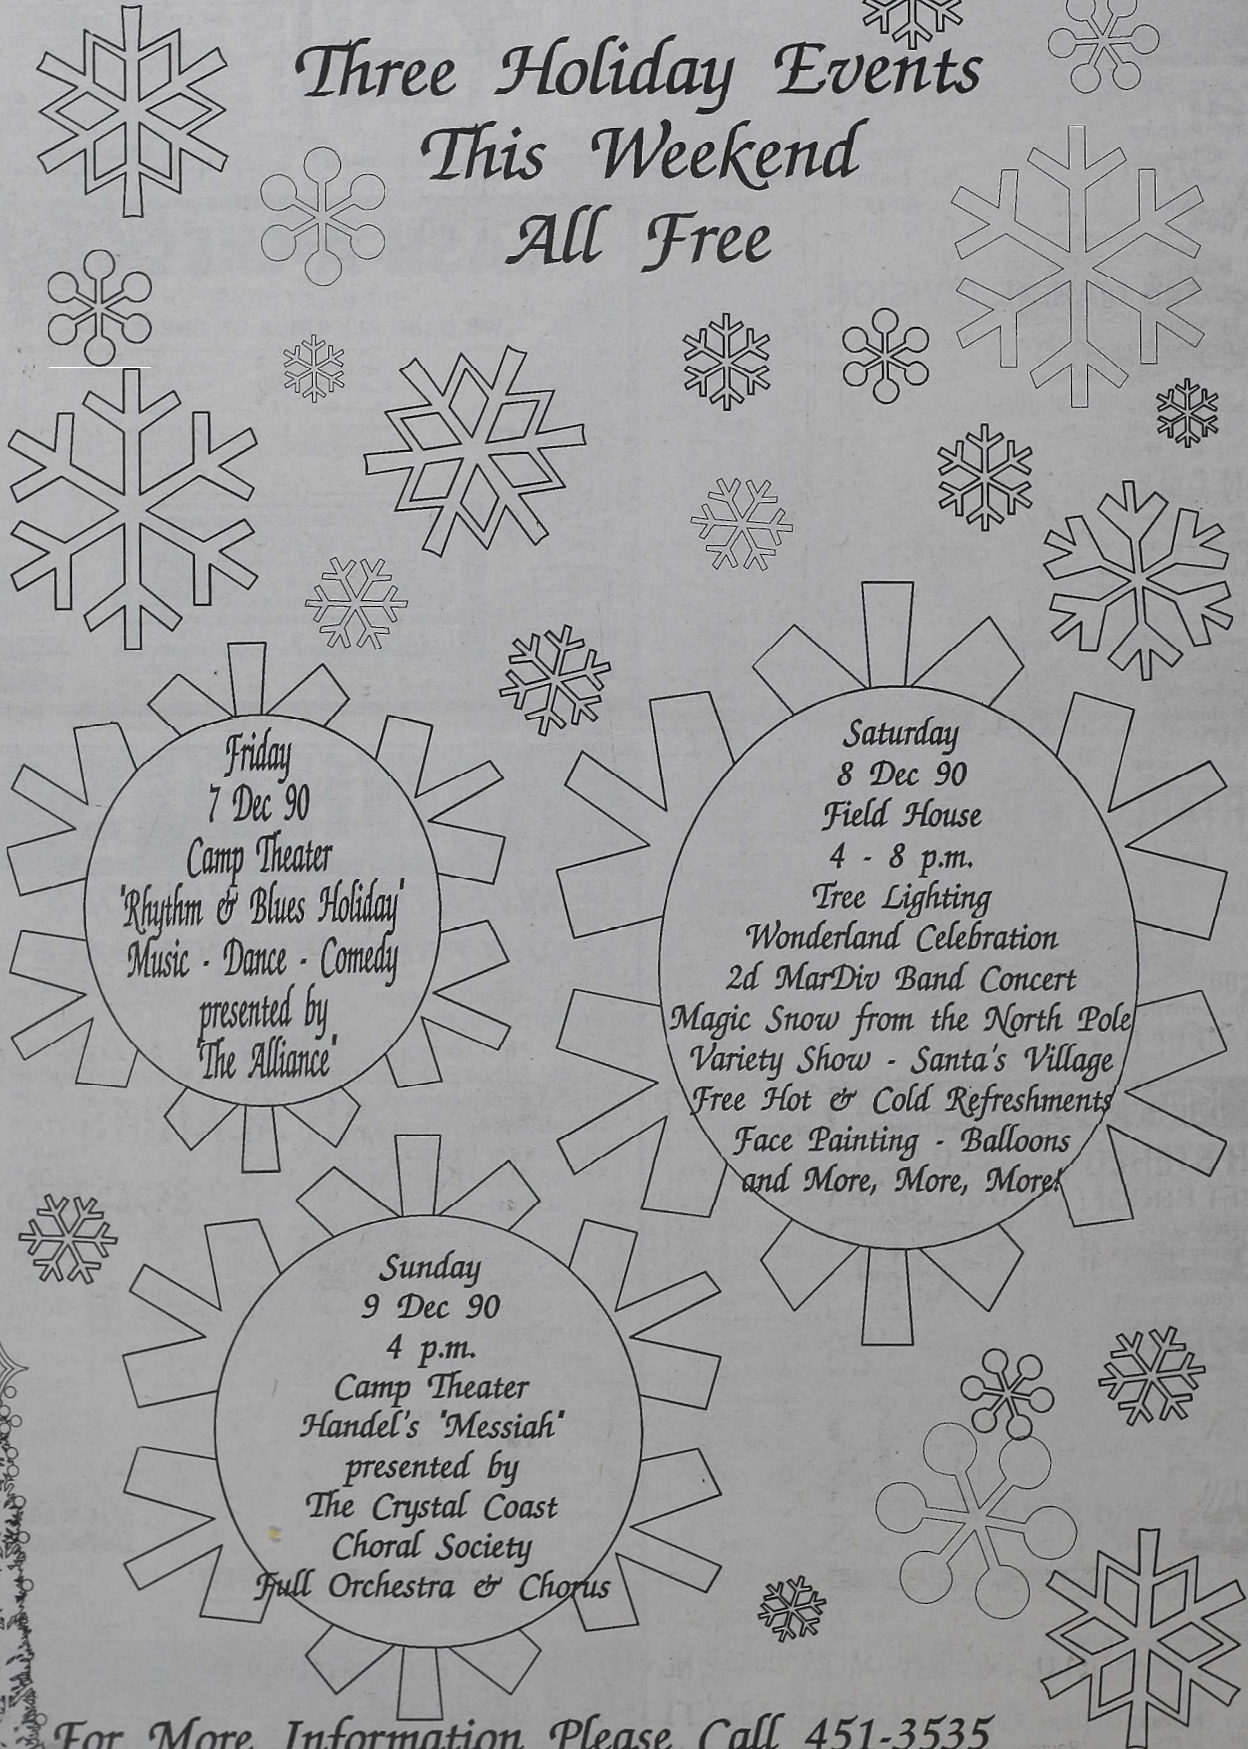 Three Holiday Events
This Weekend
All Free
Friday
7 Dec 90
Camp Theater
"Rhythm & Blues Holiday"
Music - Dance - Comedy
presented by
"The Alliance"
Saturday
8 Dec 90
Field House
4 - 8 p.m.
Tree Lighting
Wonderland Celebration
2d MarDiv Band Concert
Magic Snow from the North Pole
Variety Show - Santa's Village
Free Hot & Cold Refreshments
Face Painting - Balloons
and More, More, More!
Sunday
9 Dec 90
4 p.m.
Camp Theater
Handel's "Messiah"
presented by
The Crystal Coast
Choral Society
Full Orchestra & Chorus
For More Information Please Call 451-3535